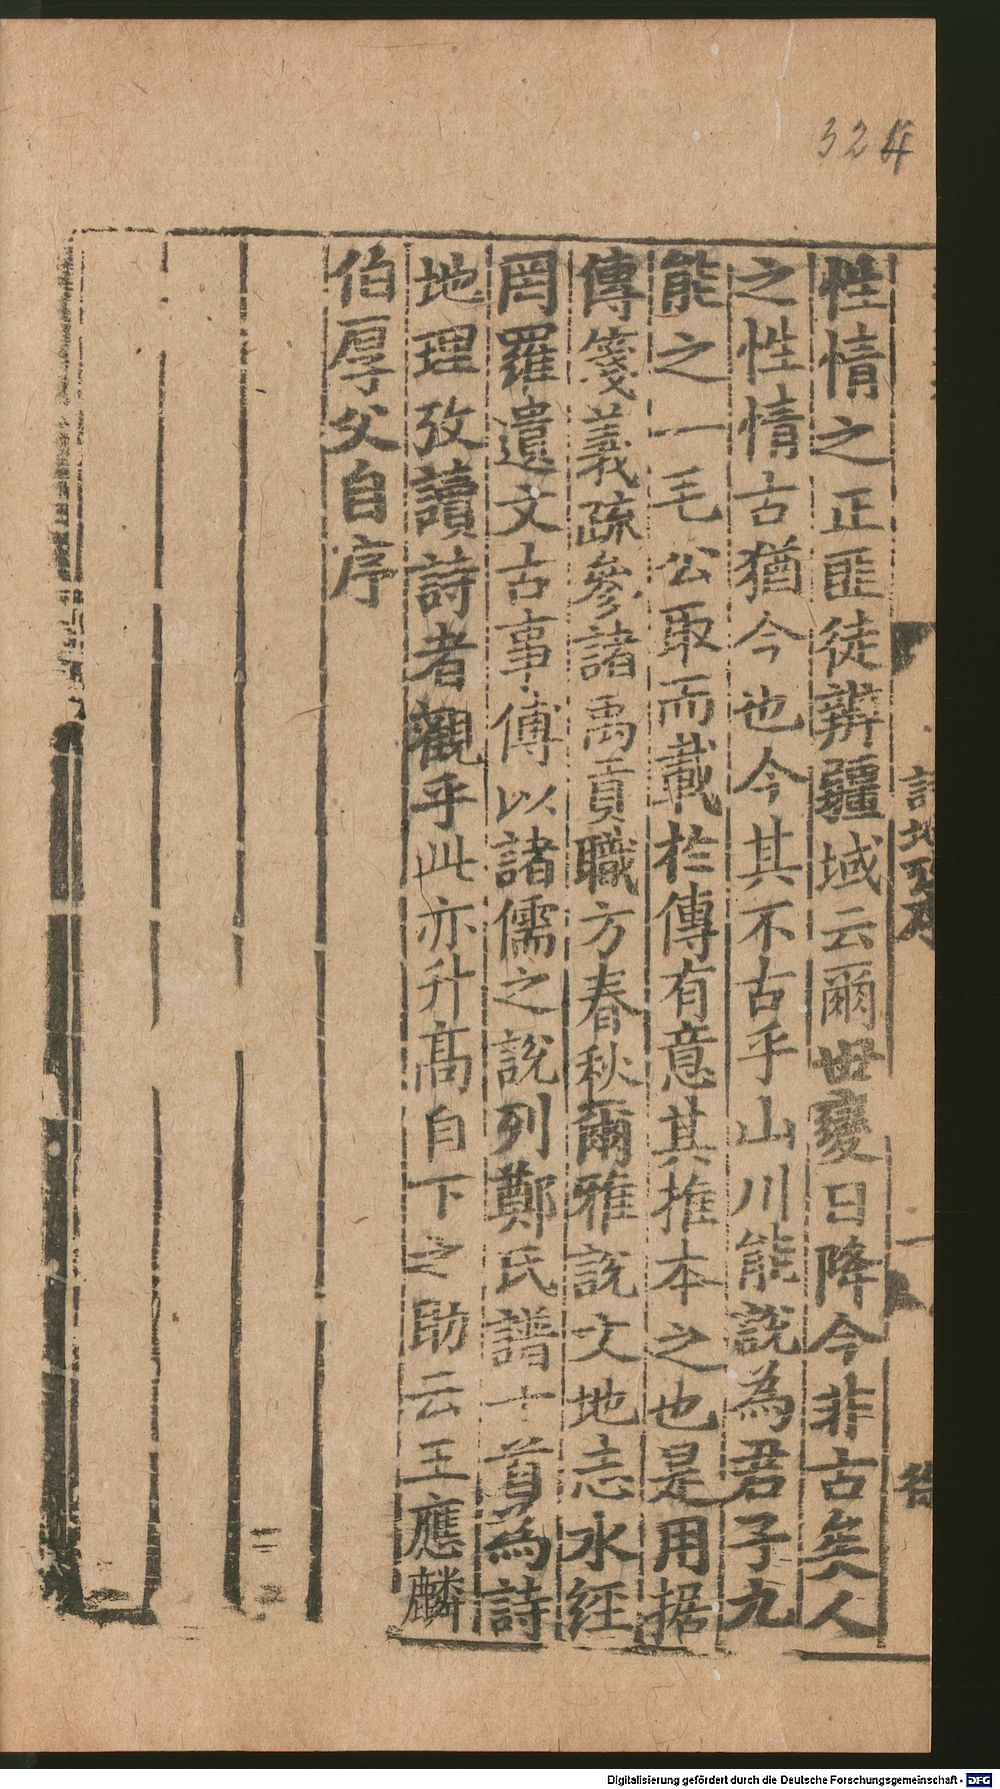 324
性情之正匪徒辨疆域云爾世變日降今非古矣人
之性情古猶今也今其不古乎山川能說為君子九
能之一毛公取而載於傳有意其推本之也是用据
傳箋義疏參諸禹貢職方春秋爾雅說文地志水經
罔羅遺文古事傅以諸儒之說列鄭氏譜十首為詩
地理攷讀詩者觀乎此亦升高自下之助云王應麟
伯厚父自序
Digitalisierung gefördert durch die Deutsche Forschungsgemeinschaft - DFG